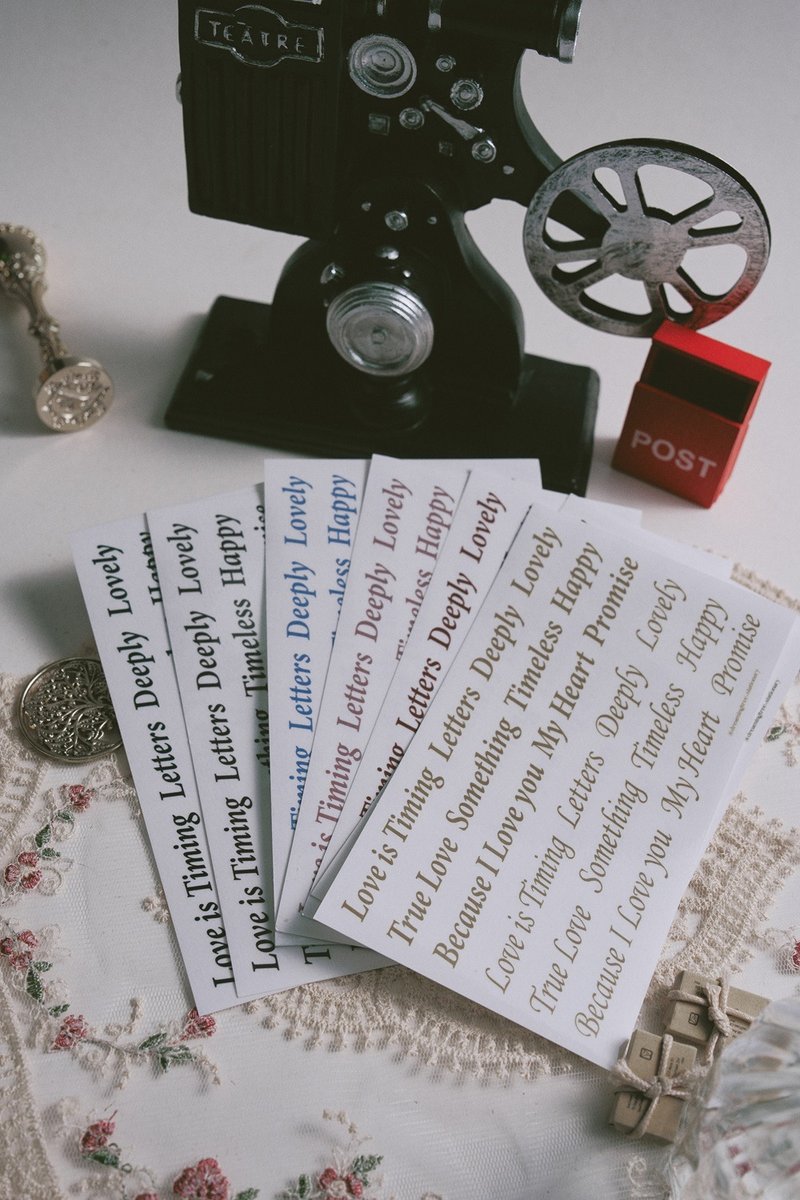 TEATRE
POST
Love is Timing Letters Deeply Lovely
Happy
Love is Timing Letters Deeply Lovely
Timeless Happy
Timing Letters Deeply Lovely
Timeless Happy
is Timing Letters Deeply Lovely
Timeless Happy
Timing Letters Deeply Lovely
Love is Timing Letters Deeply Lovely
True Love Something Timeless Happy
Because I Love you My Heart Promise
Love is Timing Letters Deeply Lovely
True Love Something Timeless Happy
Because I Love you My Heart Promise